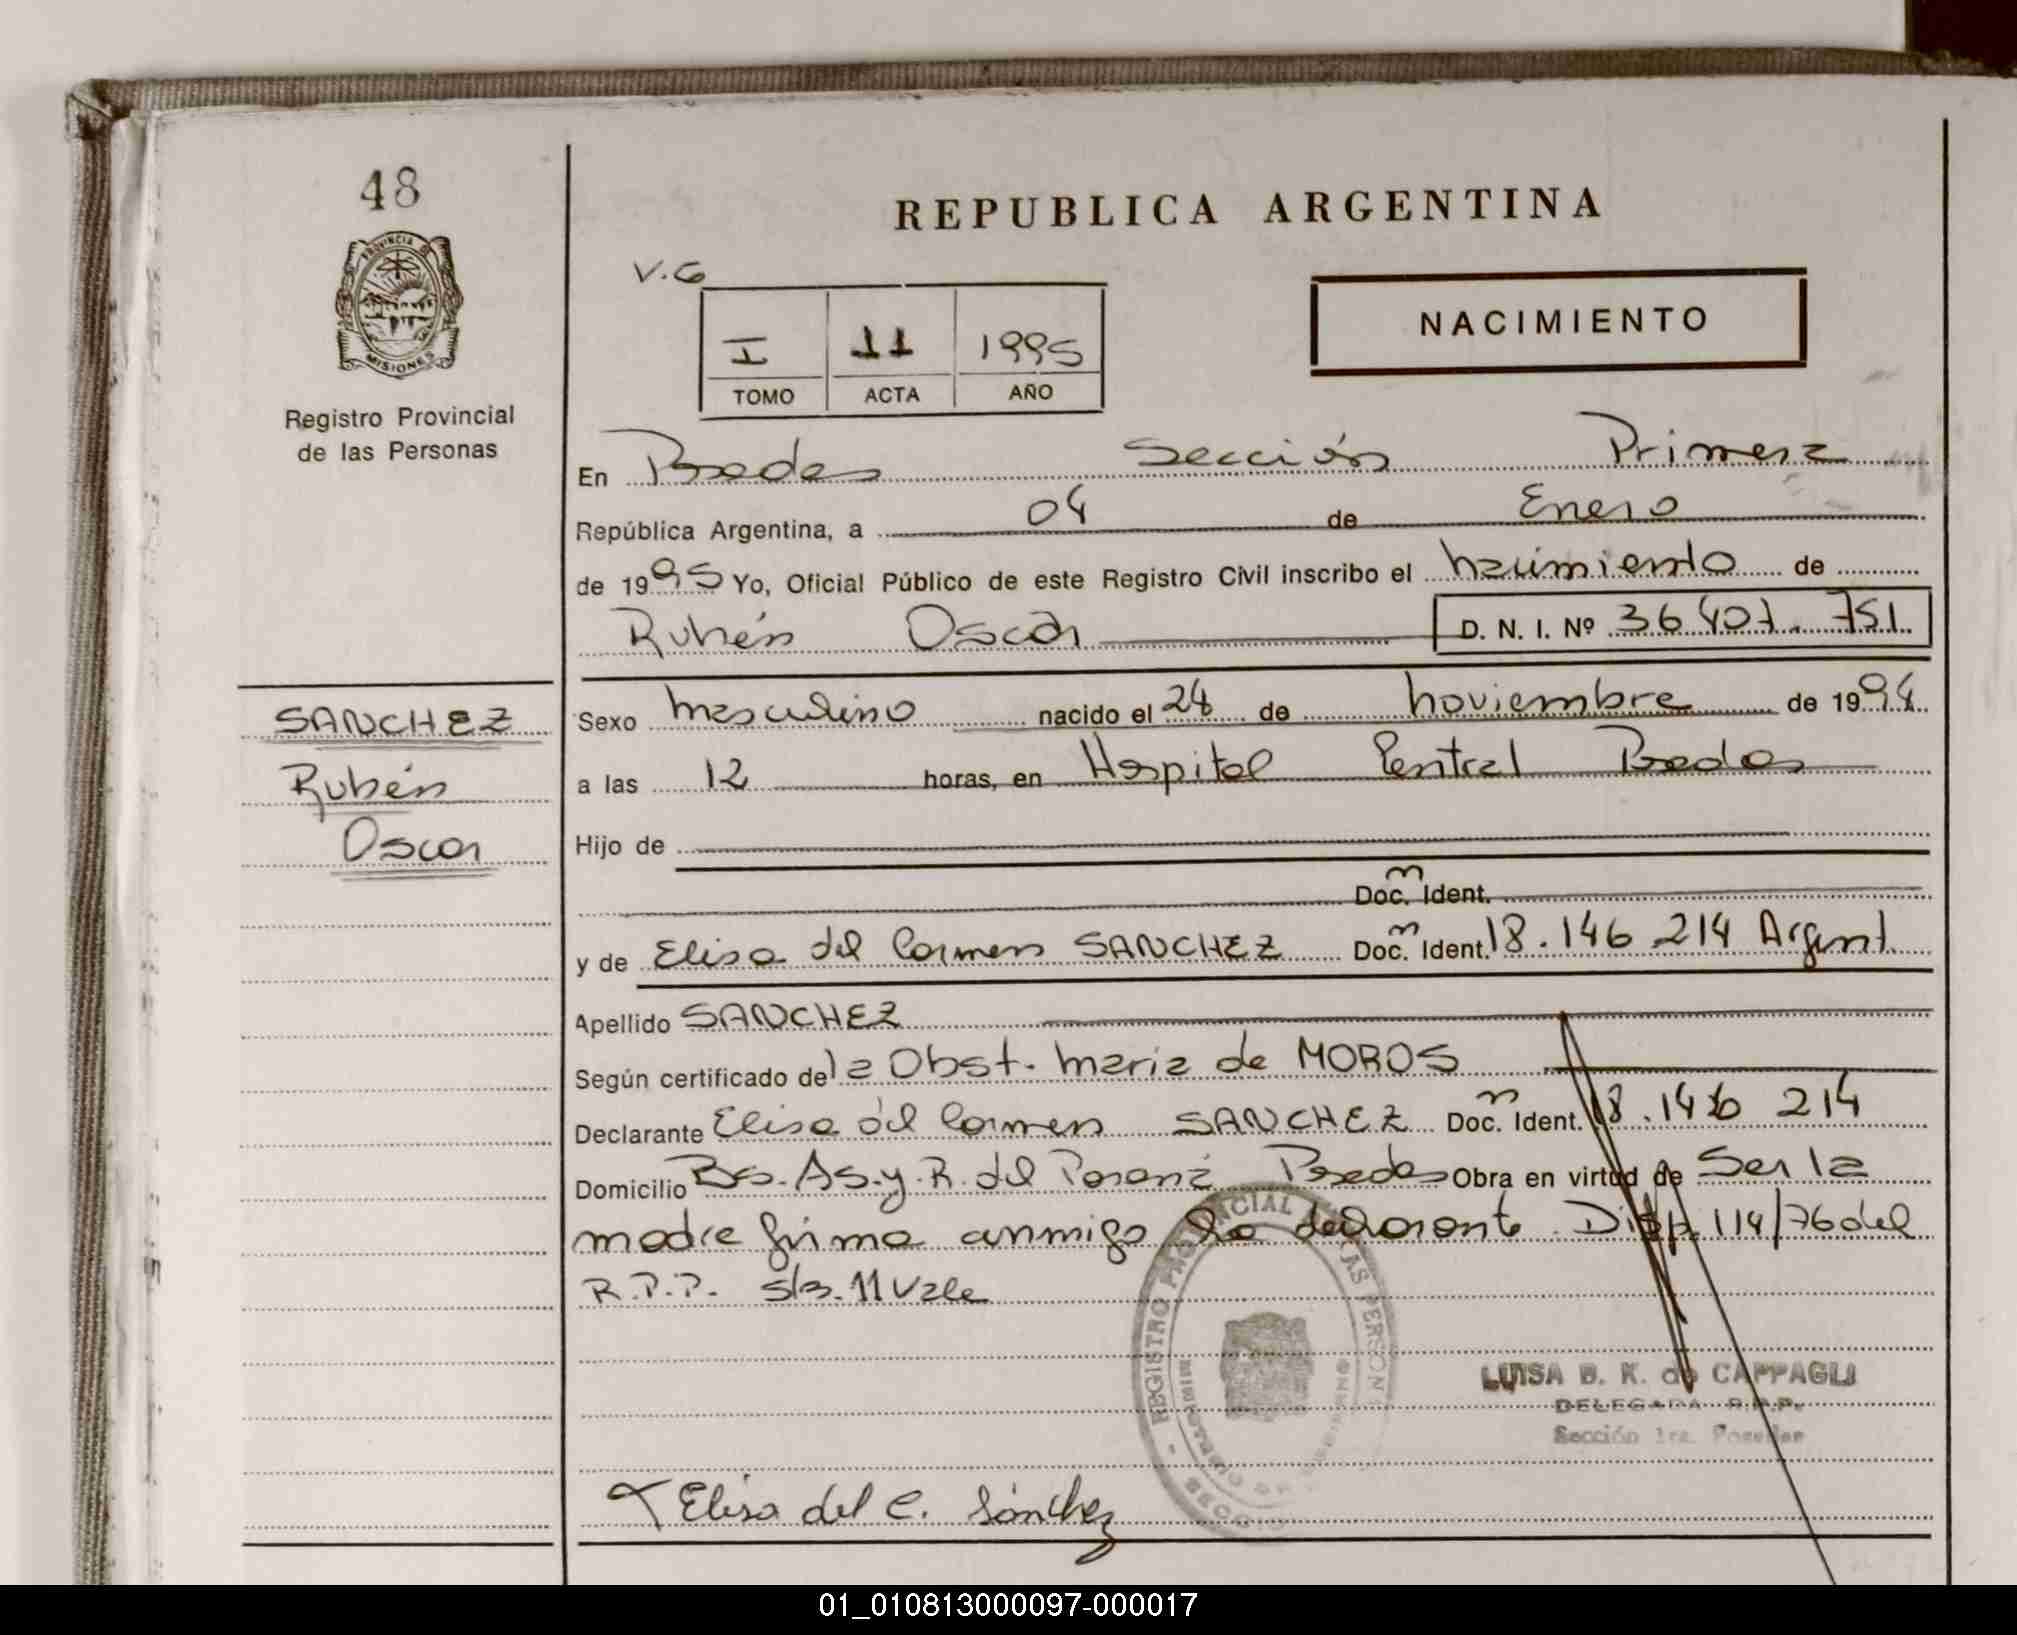 48
PROVINCIA DE
MISIONES
Registro Provincial
de las Personas
SANCHEZ
Rubén
Oscar
REPUBLICA ARGENTINA
V.G
I 11 1995
TOMO ACTA AÑO
NACIMIENTO
En Posadas Sección Primera
República Argentina, a 04 de Enero
de 1995 Yo, Oficial Público de este Registro Civil inscribo el nacimiento de
Rubén Oscar D. N. I. Nº 36.407.751
Sexo masculino nacido el 24 de noviembre de 1994
a las 12 horas, en Hospital Central Posadas
Hijo de
Doc. Ident.
y de Elisa del Carmen SANCHEZ Doc. Ident. 18.146.214 Argent.
Apellido SANCHEZ
Según certificado de la Obst. Maria de MOROS
Declarante Elisa del Carmen SANCHEZ Doc. Ident. 18.146 214
Domicilio Bs. As. y R. del Paraná Posadas Obra en virtud de Ser la
madre firma conmigo la declarante. Disp. 114/76 del
R.P.P. s/b. 11 Vale
REGISTRO PROVINCIAL DE LAS PERSONAS
MINISTERIO DE GOBIERNO
LUISA B. K. de CAPPAGLI
DELEGADA R.P.P.
Sección 1ra. Posadas
Elisa del C. Sánchez
01_010813000097-000017